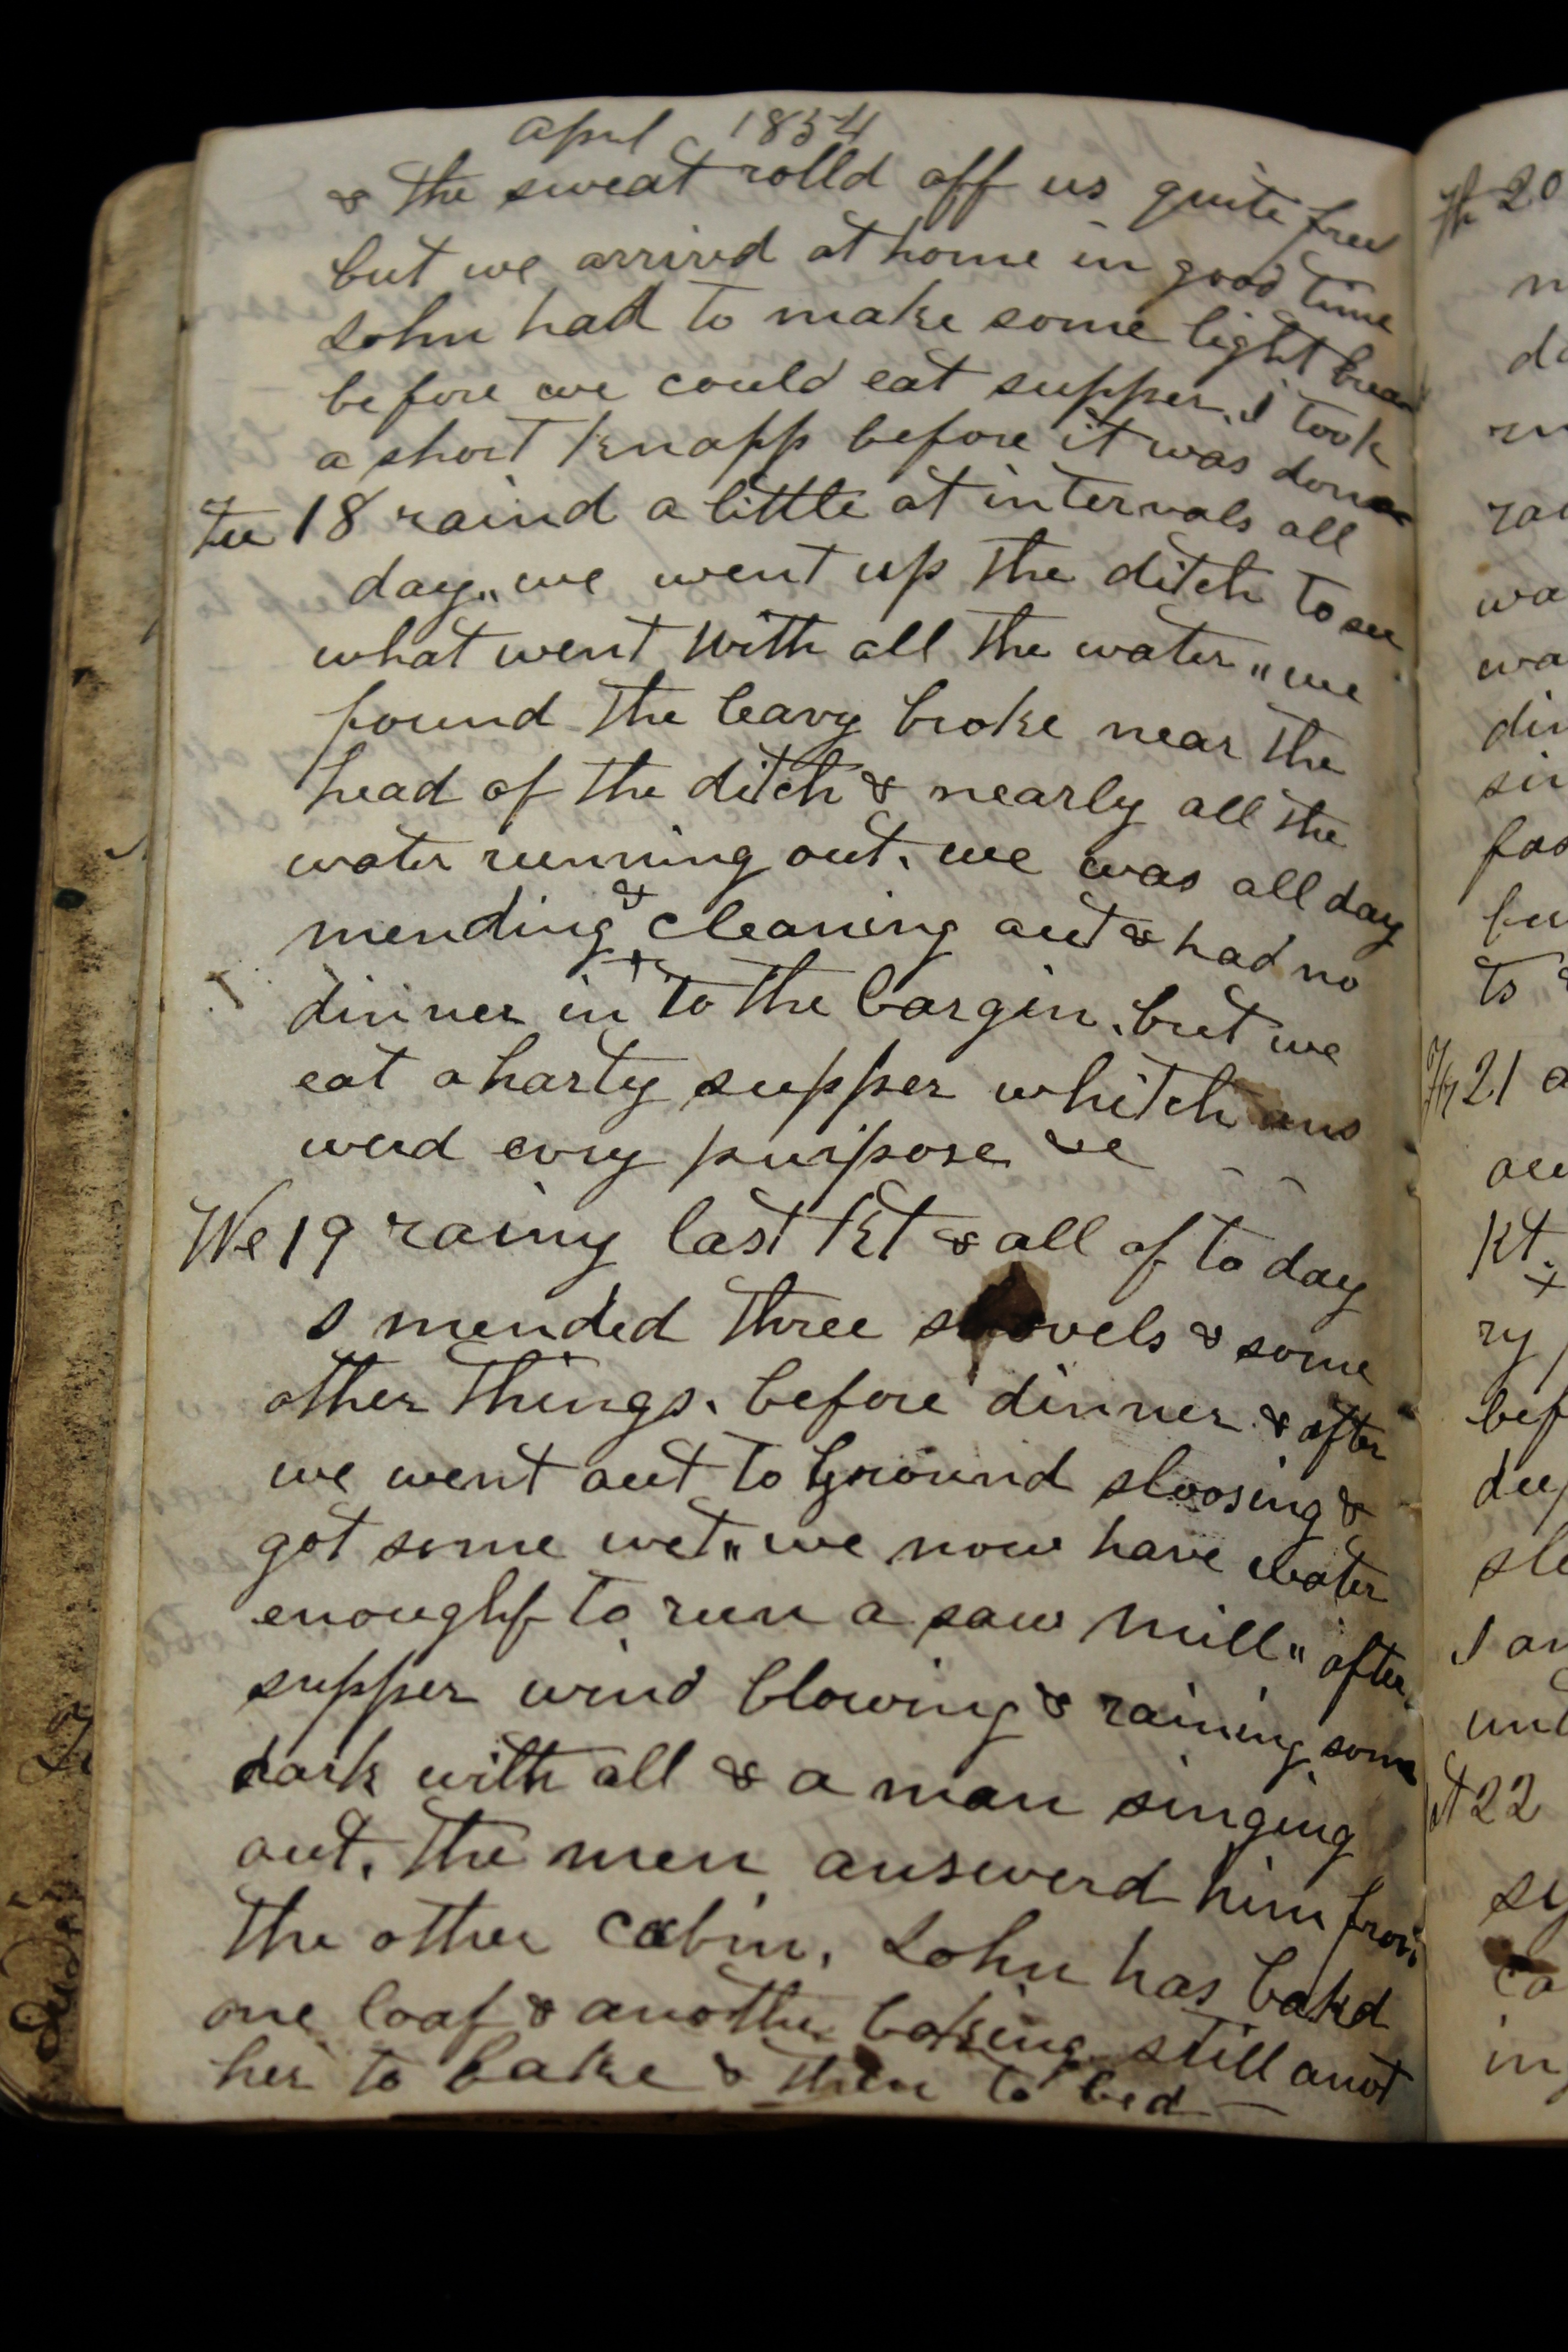 april 1854
& the sweat rolld off us quite free
but we arrivd at home in good time
John had to make some light bread
before we could eat supper. I took
a short knapp before it was done
Tu 18 raind a little at intervals all
day„ we went up the ditch to see
what went with all the water „ we
found the leavy broke near the
head of the ditch & nearly all the
water running out. we was all day
mending & cleaning out & had no
dinner in to the bargin. but we
eat a harty supper whitch ans
werd evry purpose &c
We 19 rainy last Kt & all of to day
I mended three shovels & some
other things. before dinner & after
we went out to Ground sloosing &
got some wet„ we now have water
enoughf to run a saw mill „ after
supper wind blowing & raining some
dark with all & a man singing
out. the men answerd him from
the other cabin. John has bakd
one loaf & another baking still anot
her to bake & then to bed
Th 20
da
wa
wa
to
Fr 21 a
Kt.
ry
bef
I an
St 22
ing